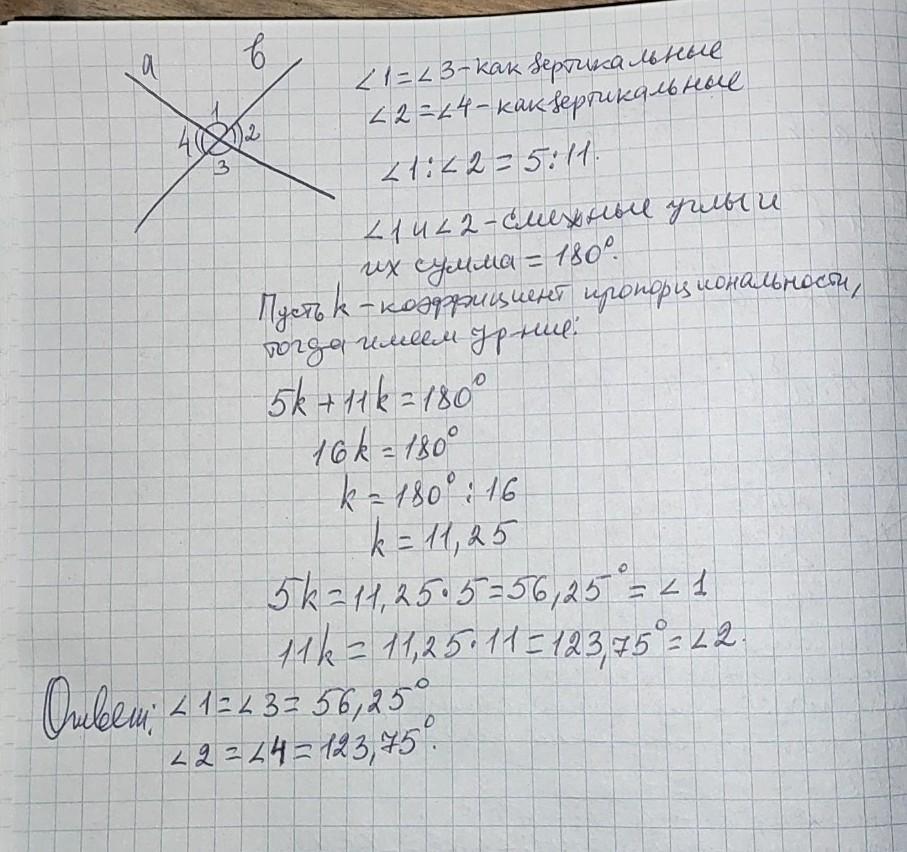 a
в
1
4
2
3
∠1=∠3-как вертикальные
∠2=∠4-как вертикальные
∠1:∠2=5:11.
∠1 и ∠2-смежные углы и
их сумма=180°.
Пусть k-коэффициент пропорциональности,
тогда имеем ур-ние:
5k+11k=180°
16k=180°
k=180°:16
k=11,25
5k=11,25·5=56,25°=∠1
11k=11,25·11=123,75°=∠2.
Ответ: ∠1=∠3=56,25°
∠2=∠4=123,75°.